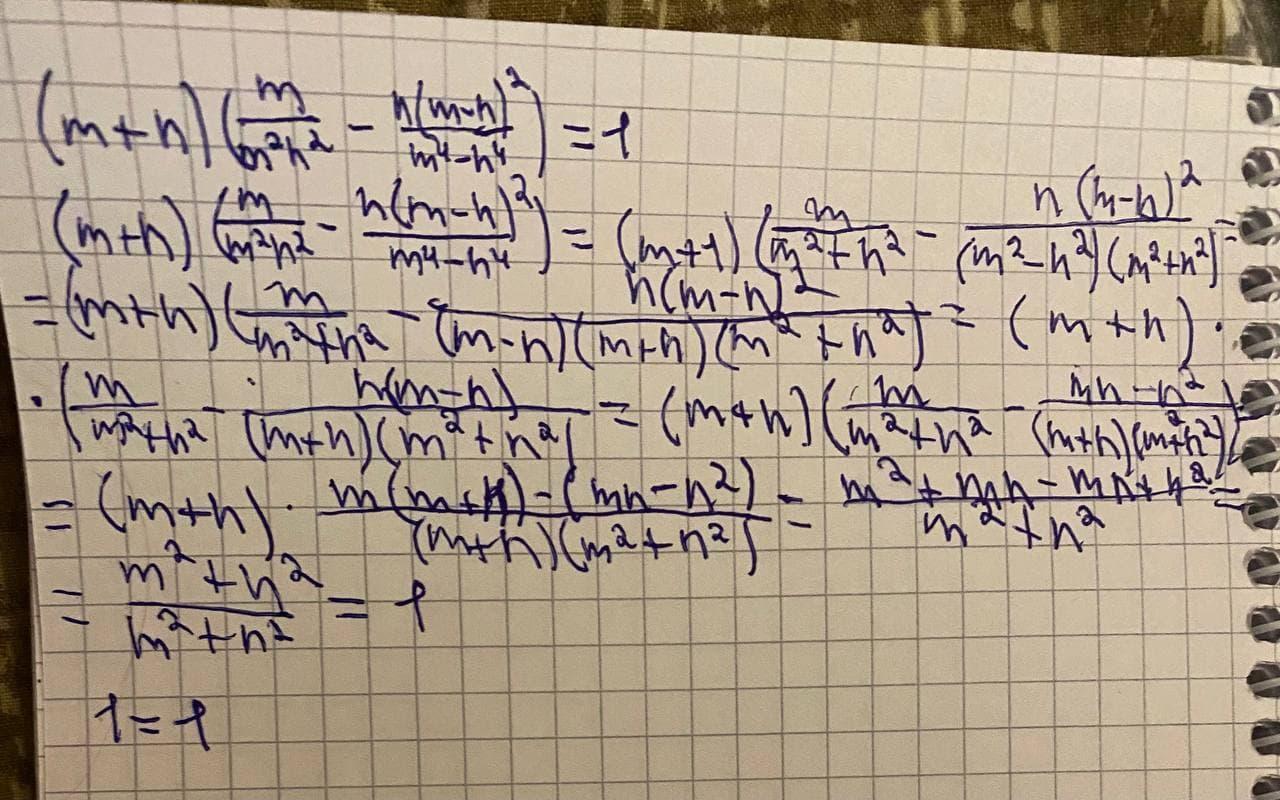 (m+n)(m/m²n² - n(m-n)²/m⁴-n⁴) = 1
(m+n)(m/m²n² - n(m-n)²/m⁴-n⁴) = (m+1)(m/m²+n² - n(m-n)²/(m²-n²)(m²+n²) =
= (m+n)(m/m²+n² - n(m-n)²/(m-n)(m+n)(m²+n²) = (m+n)·
·(m/m²+n² - n(m-n)/(m+n)(m²+n²) = (m+n)(m/m²+n² - mn-n²/(m+n)(m²+n²)) =
= (m+n)· m(m+n)-(mn-n²)/(m+n)(m²+n²) = m²+mn-mn+n²/m²+n² =
= m²+n²/m²+n² = 1
1=1